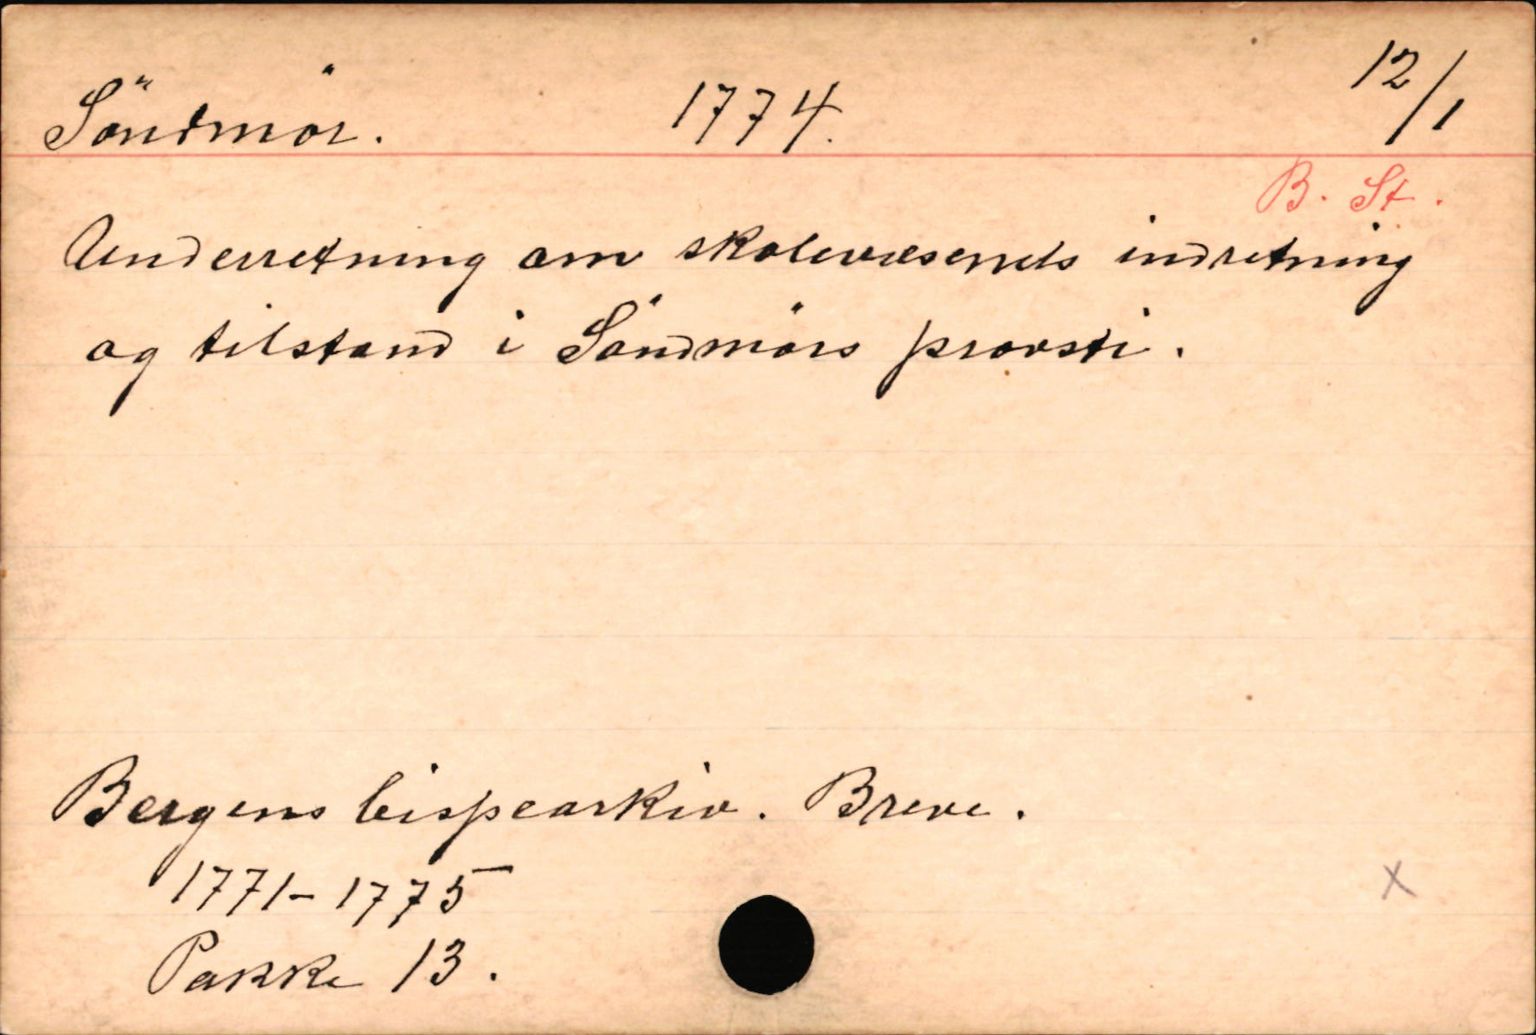 Söndmör. 1774. 12/1
B. St.
Underretning om skolevæsenets indretning
og tilstand i Söndmörs provsti.
Bergens bispearkiv. Breve.
1771-1775
Pakke 13.
x